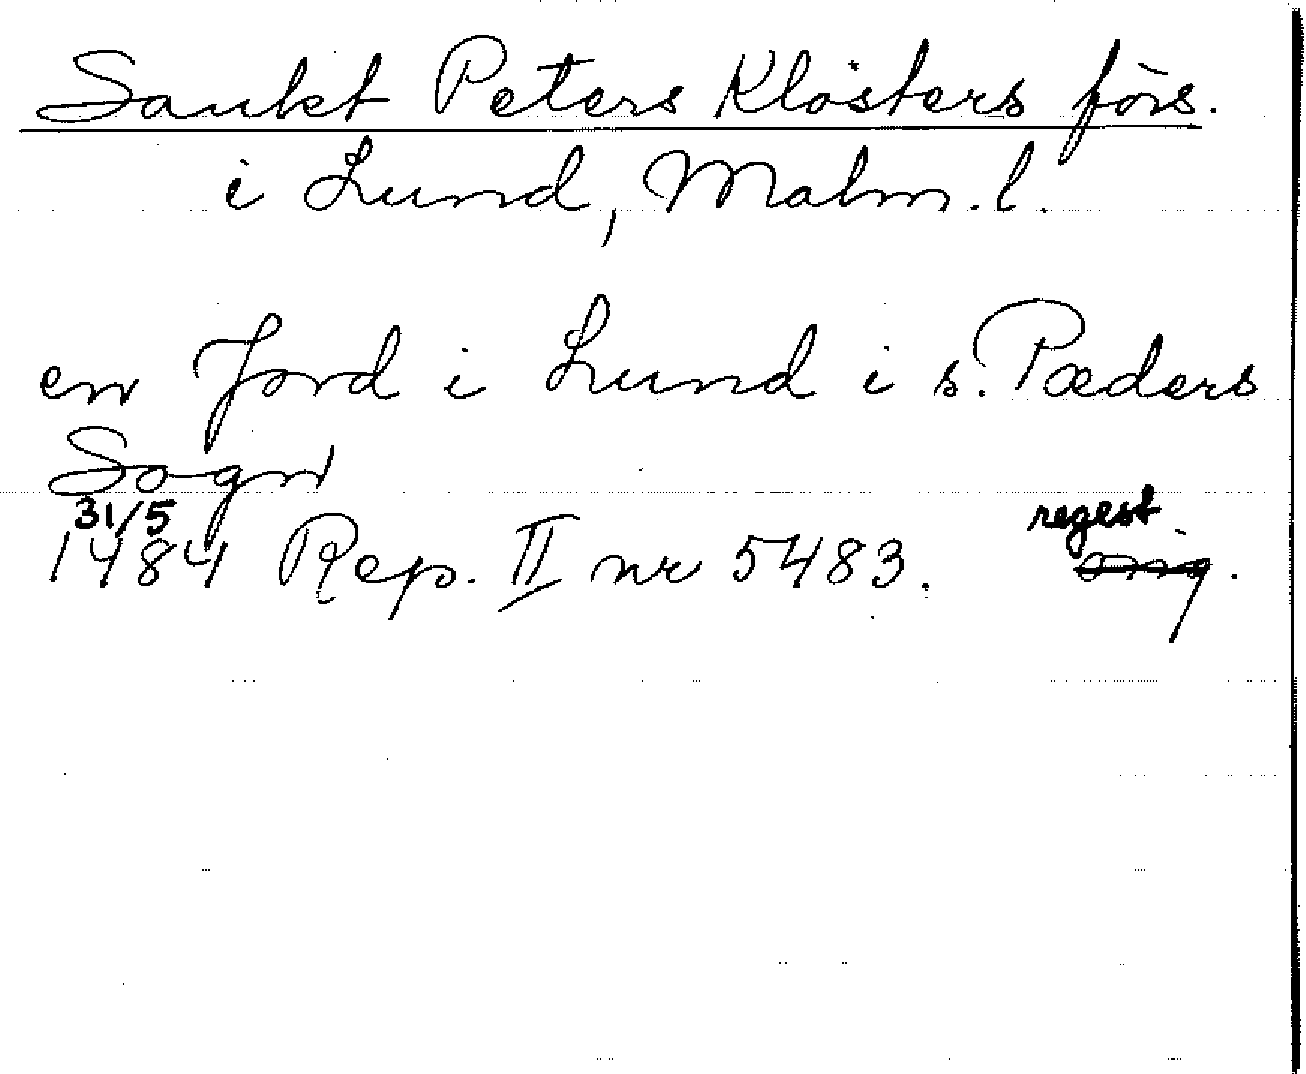 Sankt Peters Klosters förs.
i Lund, Malm. l.
en Jord i Lund i s. Pæders
Sogn
31/5 regest
1484 Rep. II nr 5483. orig.